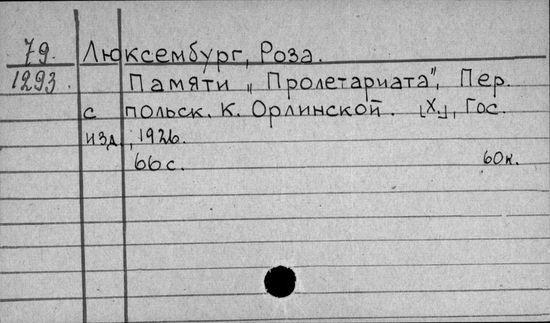 79. Люксембург, Роза.
1293. Памяти „Пролетариата", Пер.
с польск. К. Орлинской. [Х], Гос.
изд., 1926.
66 с. 60 к.